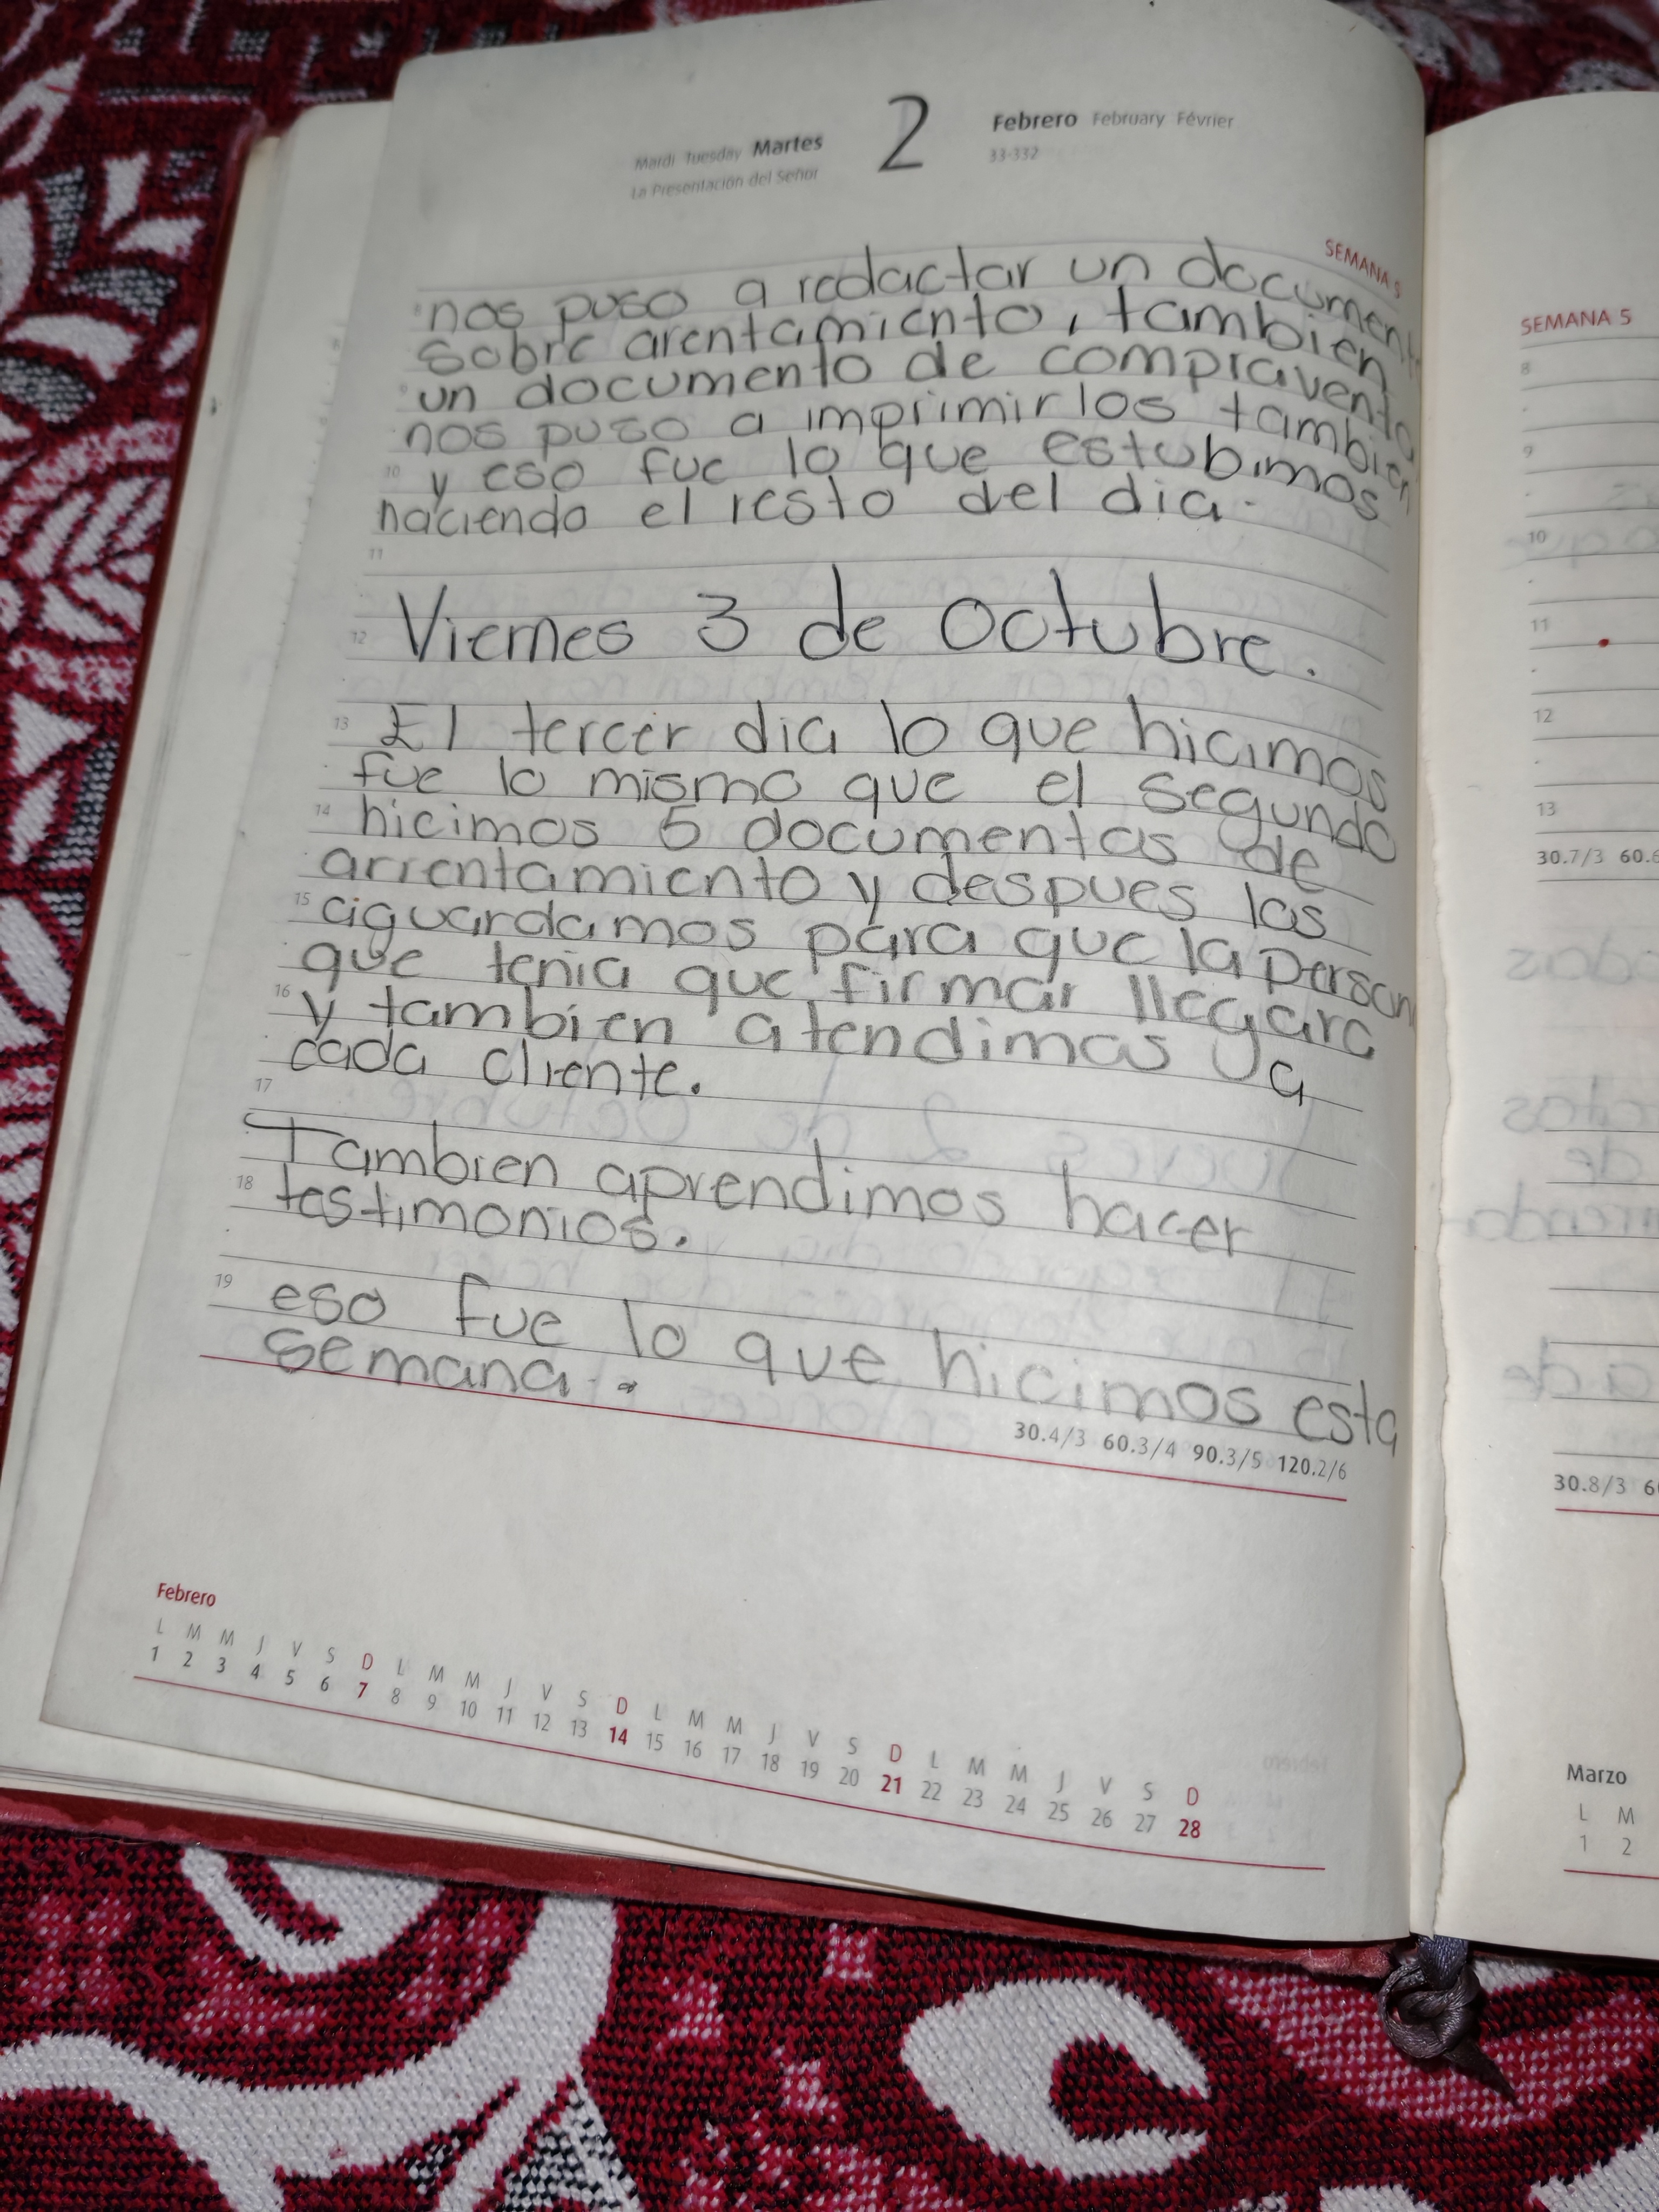 Mardi Tuesday Martes 2 Febrero February Février
La Presentación del Señor 33-332
SEMANA 5
nos puso a redactar un document
sobre arentamiento, tambien
un documento de compraventa
nos puso a imprimirlos tambien
y eso fue lo que estubimos
haciendo el resto del dia.
Viernes 3 de Octubre.
El tercer dia lo que hicimos
fue lo mismo que el segundo
hicimos 5 documentos de
arrentamiento y despues los
aguardamos para que la person
que tenia que firmar llegara
y tambien atendimos a
cada cliente.
Tambien aprendimos hacer
testimonios.
eso fue lo que hicimos esta
semana.
8
9
10
11
12
13
14
15
16
17
18
19
30.4/3 60.3/4 90.3/5 120.2/6
Febrero
L M M J V S D L M M J V S D L M M J V S D L M M J V S D
1 2 3 4 5 6 7 8 9 10 11 12 13 14 15 16 17 18 19 20 21 22 23 24 25 26 27 28
SEMANA 5
8
9
10
11
12
13
30.7/3 60.6
30.8/3
Marzo
L M
1 2